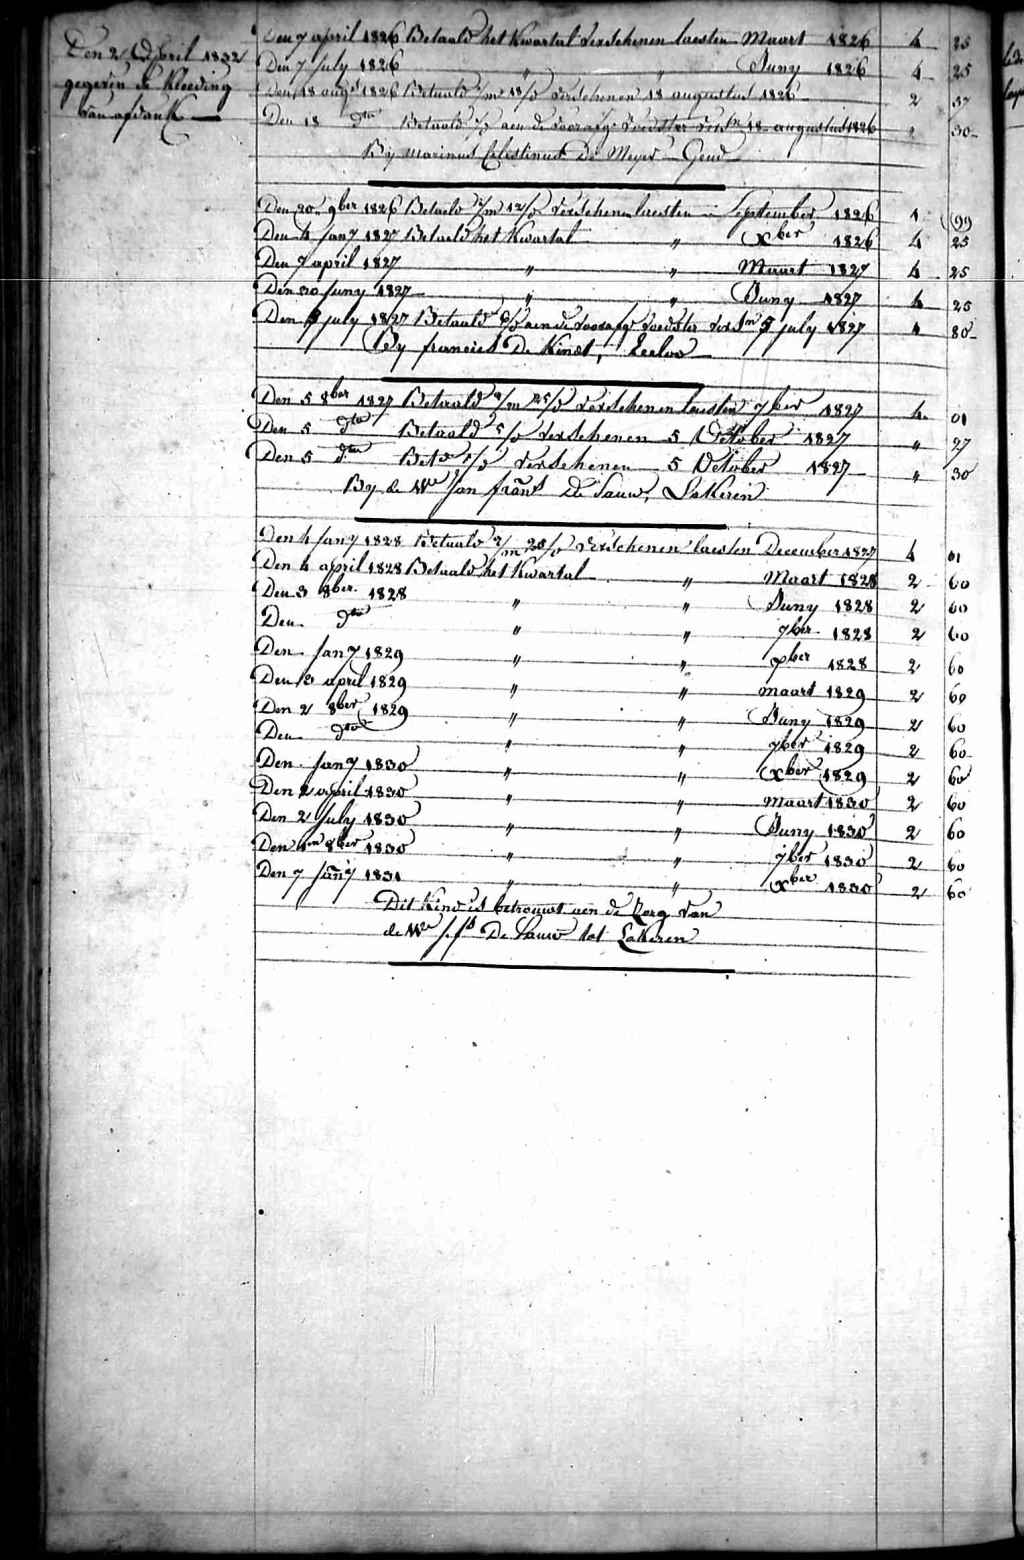 Den 2 April 1832
gegeven de Kleeding
van afdank
Den 7 april 1826 Betaald het Kwartal verschenen laesten Maart 1826 4 25
Den 7 July 1826 " " Juny 1826 4 25
Den 18 augt 1826 Betaald 1/m 18/d verschenen 18 augustus 1826 2 37
Den 18 dto Betaald aen de voorzge voedster 18 augustus 1826 30
By marinus Celestinus De Meyer Gend
Den 20 9ber 1826 Betaald 1/m 12/d verschenen laesten September 1826 1 99
Den 4 Jany 1827 Betaald het Kwartal " Xber 1826 4 25
Den 7 april 1827 " " Maart 1827 4 25
Den 30 Juny 1827 " " Juny 1827 4 25
Den 5 July 1827 Betaald aen de voorzge voedster 5 July 1827 80
By francies De Kindt, Eecloo
Den 5 8ber 1827 Betaald 2/m 25/d verschenen laesten 7ber 1827 4 01
Den 5 dto Betaald 5/d verschenen 5 October 1827 " 27
Den 5 dto Bet verschenen 5 October 1827 " 30
By de We Jan frans De Sauw, Lokeren
Den 4 Jany 1828 Betaald 2/m 25/d verschenen laesten December 1827 4 01
Den 4 april 1828 Betaald het Kwartal " Maart 1828 2 60
Den 3 8ber 1828 " " Juny 1828 2 60
Den dto " " 7ber 1828 2 60
Den Jany 1829 " " xber 1828 2 60
Den april 1829 " " maart 1829 2 60
Den 2 8ber 1829 " " Juny 1829 2 60
Den dto " " 7ber 1829 2 60
Den Jany 1830 " " Xber 1829 2 60
Den 2 april 1830 " " maart 1830 2 60
Den 2 July 1830 " " Juny 1830 2 60
Den 8ber 1830 " " 7ber 1830 2 60
Den 7 Jany 1831 " " Xber 1830 2 60
Dit Kind is betrouwt aen de Zorg van
de We J. fs De Sauw tot Lokeren